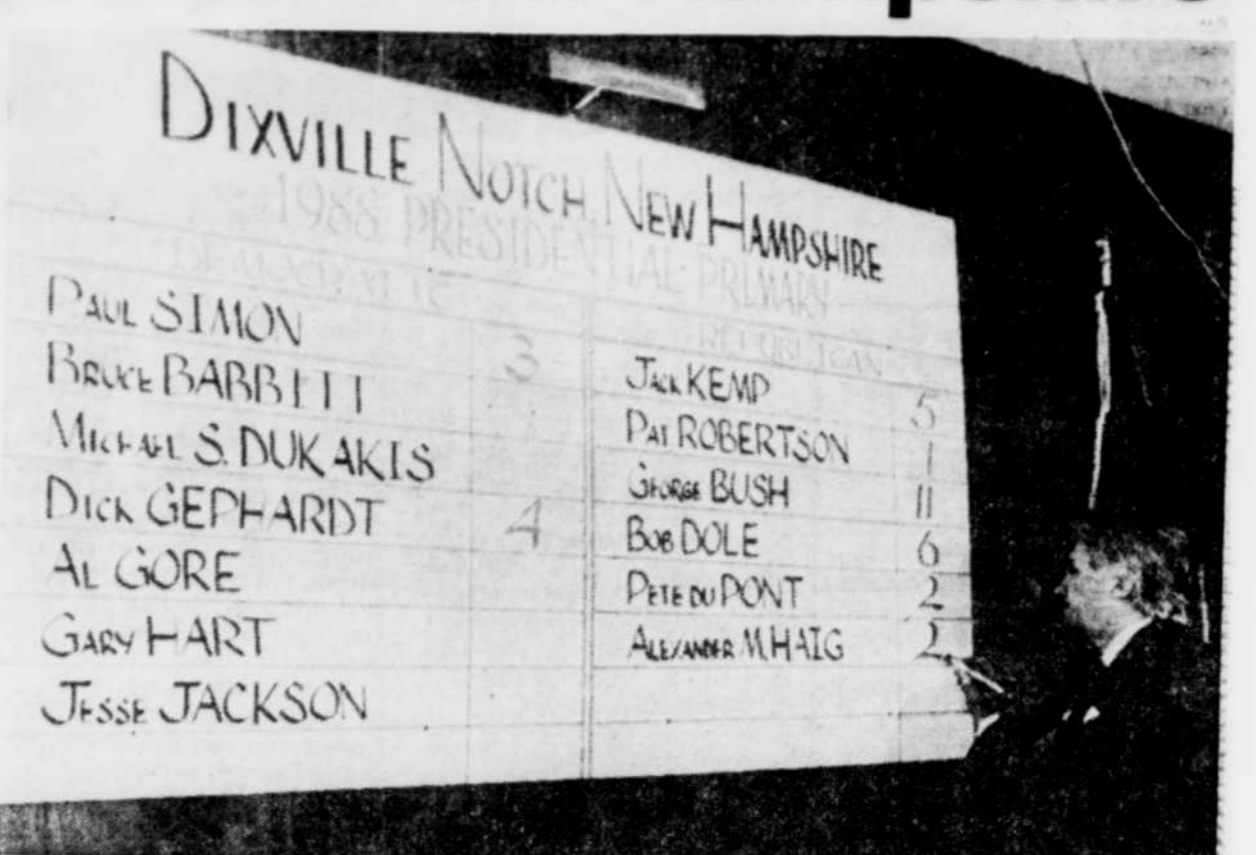 DIXVILLE NOTCH, NEW HAMPSHIRE
1988 PRESIDENTIAL PRIMARY
DEMOCRATIC
PAUL SIMON 3
BRUCE BABBITT
MICHAEL S. DUKAKIS
DICK GEPHARDT 4
AL GORE
GARY HART
JESSE JACKSON
REPUBLICAN
JACK KEMP 5
PAT ROBERTSON 1
GEORGE BUSH 11
BOB DOLE 6
PETE DU PONT 2
ALEXANDER M. HAIG 2